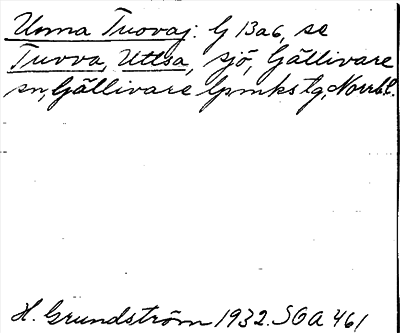 Unna Tuovaj: G 13a6, se
Tuvva, Uttsa, sjö, Gällivare
sn, Gällivare lpmks tg, Norrb. l.
H. Grundström 1932. SOA 461